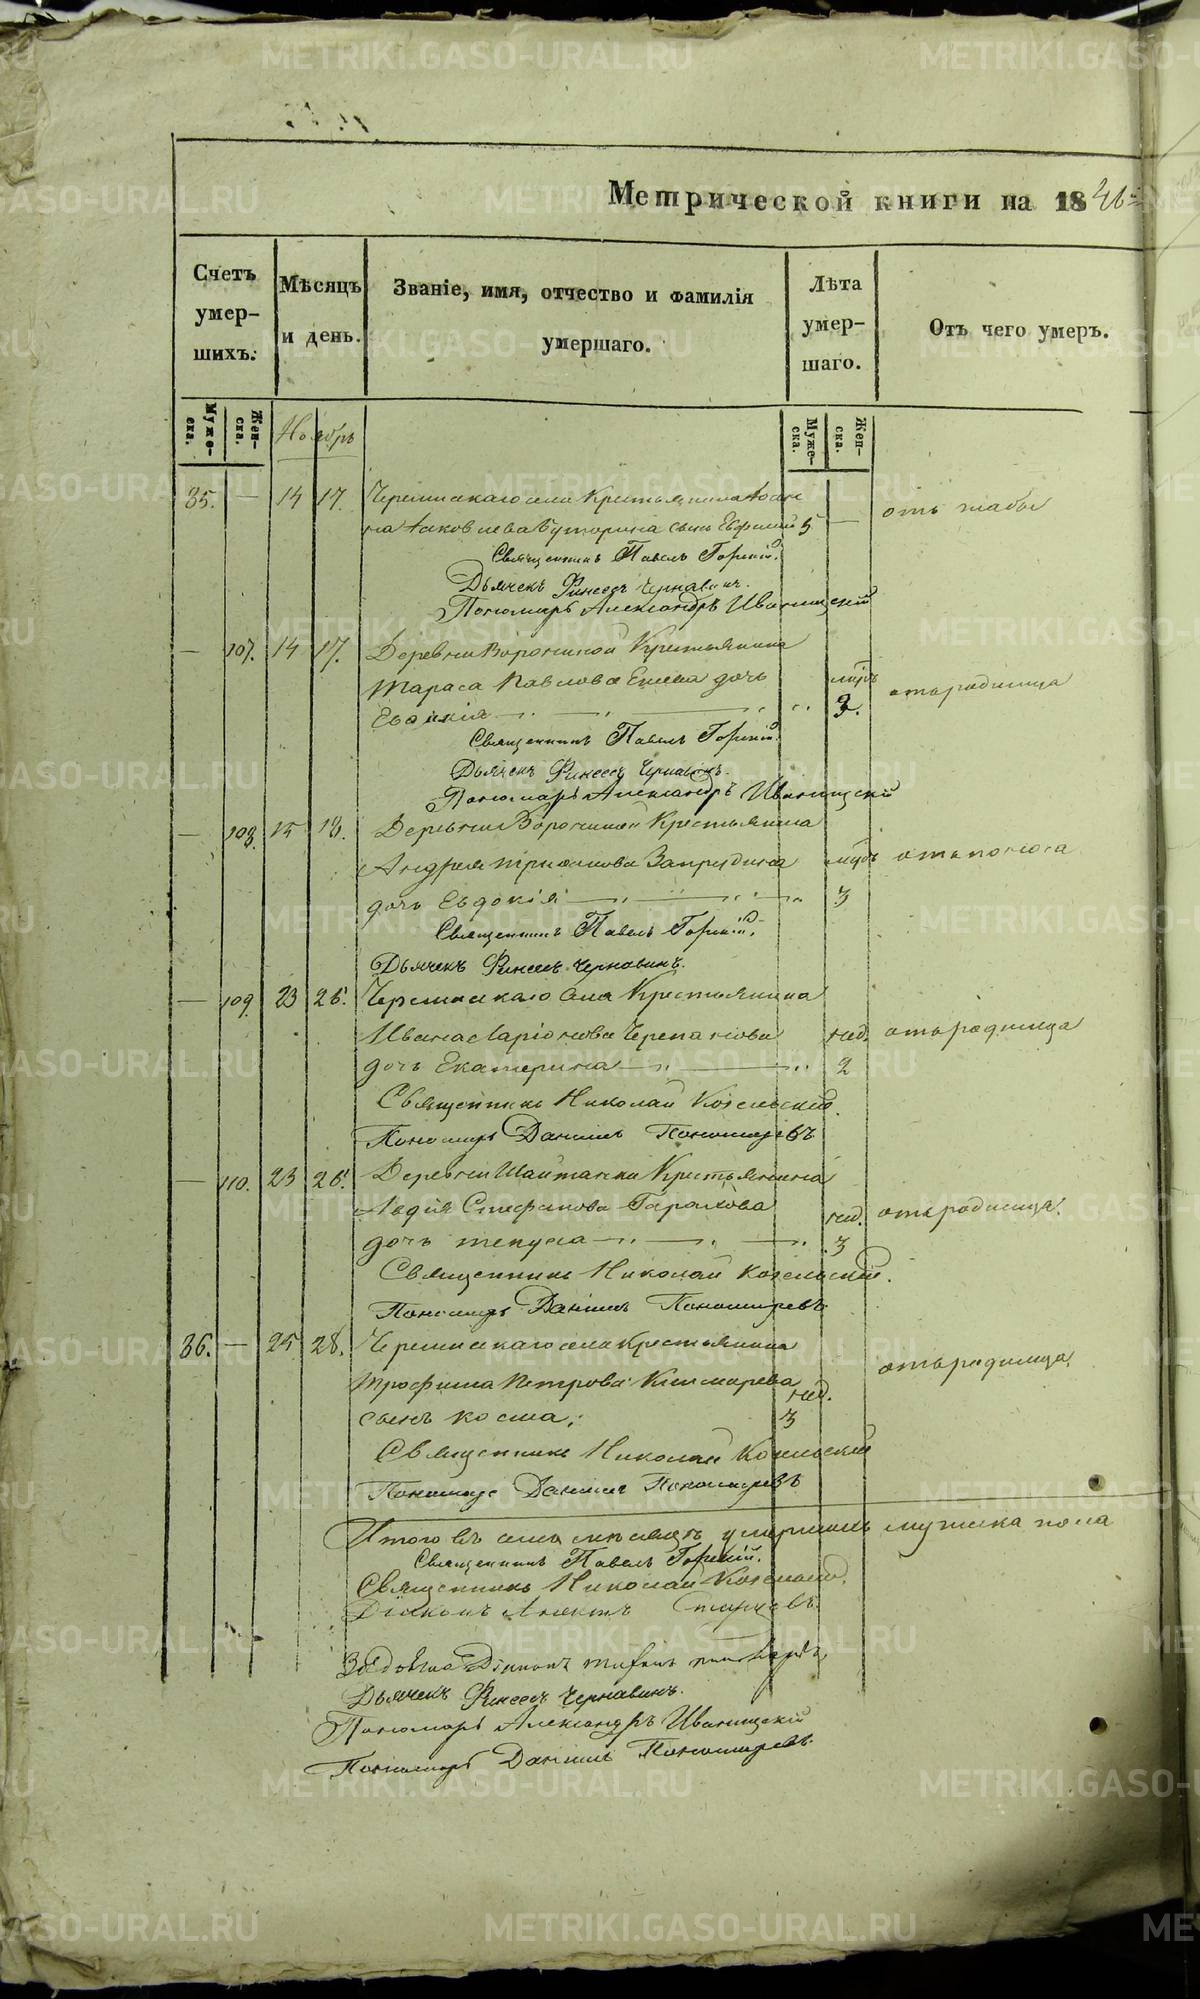 Метрической книги на 1846
Счетъ умер- шихъ.
Мѣсяцъ и день.
Званіе, имя, отчество и фамилія умершаго.
Лѣта умер- шаго.
Отъ чего умеръ.
Муже- ска.
Жен- ска.
Ноябрь
Муже- ска.
Жен- ска.
35. — 14 17. Черемискаго села Крестьянина Іоан-
на Іаковлева Буторина сынъ Евфимій 5 — отъ жабы
Священникъ Павелъ Горный.
Дьячекъ Финеесъ Чернавинъ.
Пономарь Александръ Иваницкій
— 107. 14 17. Деревни Ворониной Крестьянина
Тараса Павлова дочь отъ родимца
3.
Священникъ Павелъ Горный.
Дьячекъ Финеесъ Чернавинъ.
Пономарь Александръ Иваницкій
— 108. 15 18. Деревни Ворониной Крестьянина
Андрея Запрудина отъ поноса
дочь Евдокія 3
Священникъ Павелъ Горный.
Дьячекъ Финеесъ Чернавинъ.
— 109. 23 26. Черемискаго села Крестьянина
Ивана Ларіонова Черепанова нед. отъ родимца
дочь Екатерина 2
Священникъ Николай Козельскій.
Пономарь Даніилъ Пономаревъ
— 110. 23 26. Деревни Шайтанки Крестьянина
Авдія Стефанова нед. отъ родимца.
дочь 3
Священникъ Николай Козельскій.
Пономарь Даніилъ Пономаревъ
36. — 25 28. Черемискаго села Крестьянина
Трофима Петрова нед. отъ родимца.
сынъ Косма. 3
Священникъ Николай Козельскій
Пономарь Даніилъ Пономаревъ
Итого въ семъ мѣсяцѣ умершихъ мужска пола
Священникъ Павелъ Горный.
Священникъ Николай Козельскій.
Діаконъ Старцевъ.
Діаконъ
Дьячекъ Финеесъ Чернавинъ.
Пономарь Александръ Иваницкій
Пономарь Даніилъ Пономаревъ.
METRIKI.GASO-URAL.RU